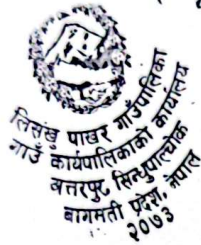 त्रिसंखु पाखर गाउँपालिका
गाउँ कार्यपालिकाको कार्यालय
बत्तरपुर, सिन्धुपाल्चोक
बागमती प्रदेश, नेपाल
२०७३